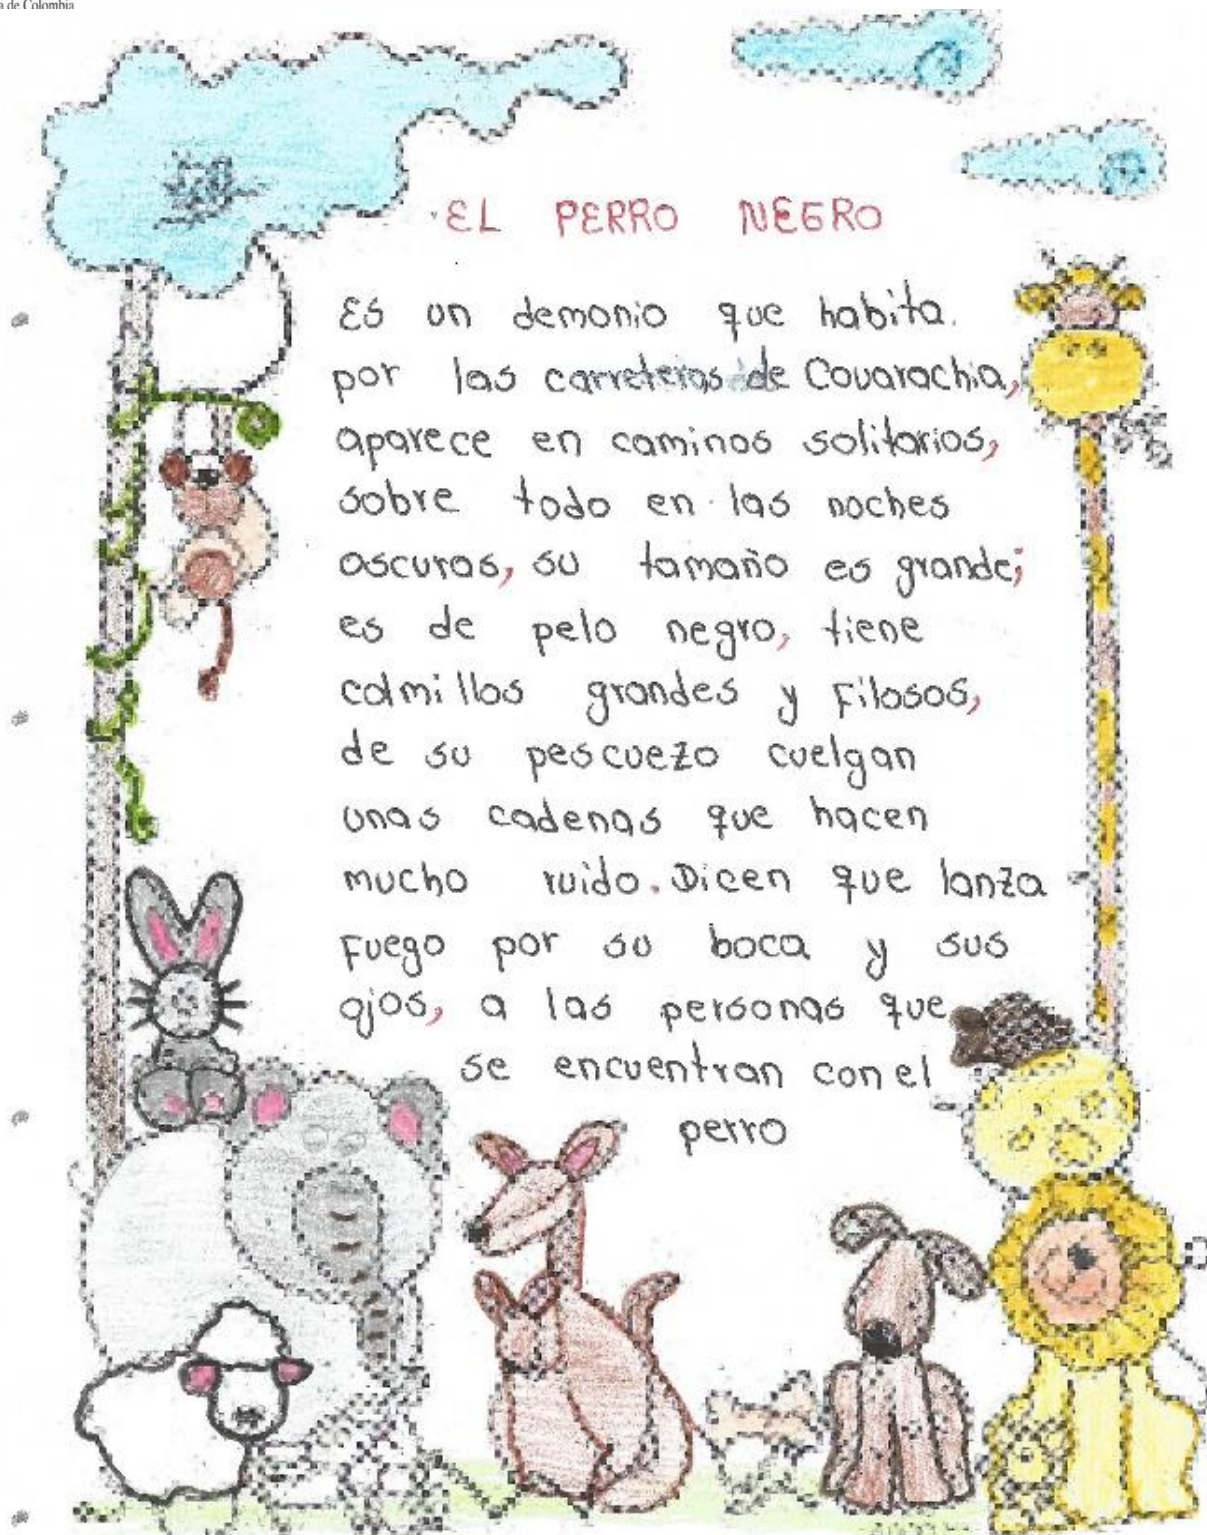 a de Colombia
EL PERRO NEGRO
Es un demonio que habita.
por las carreteras de Covarachia,
aparece en caminos solitarios,
sobre todo en las noches
oscuras, su tamaño es grande;
es de pelo negro, tiene
colmillos grandes y filosos,
de su pescuezo cuelgan
unas cadenas que hacen
mucho ruido. Dicen que lanza
fuego por su boca y sus
ojos, a las personas que
se encuentran con el
perro